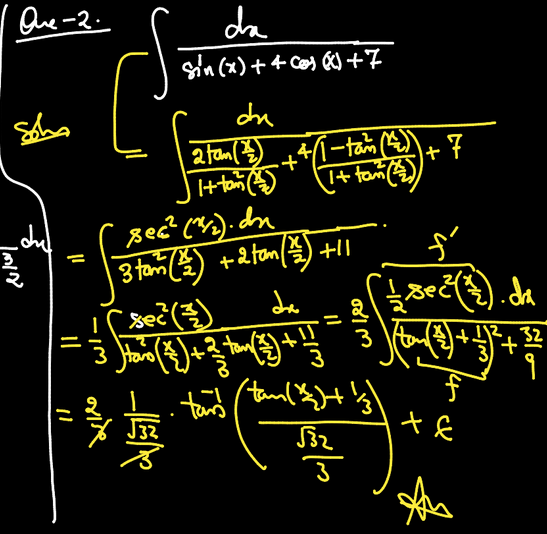 Que-2. ∫ dx / (sin(x) + 4 cos(x) + 7)
Soln
= ∫ dx / (2tan(x/2) / (1+tan²(x/2)) + 4((1-tan²(x/2)) / (1+tan²(x/2))) + 7)
3/2 dx
= ∫ sec²(x/2)·dx / (3tan²(x/2) + 2tan(x/2) + 11)
= 1/3 ∫ sec²(x/2) dx / (tan²(x/2) + 2/3 tan(x/2) + 11/3) = 2/3 ∫ 1/2 sec²(x/2)·dx / ((tan(x/2) + 1/3)² + 32/9)
f'
f
= 2/3 · 1/(√32/3) · tan⁻¹((tan(x/2) + 1/3) / (√32/3)) + c
Ans